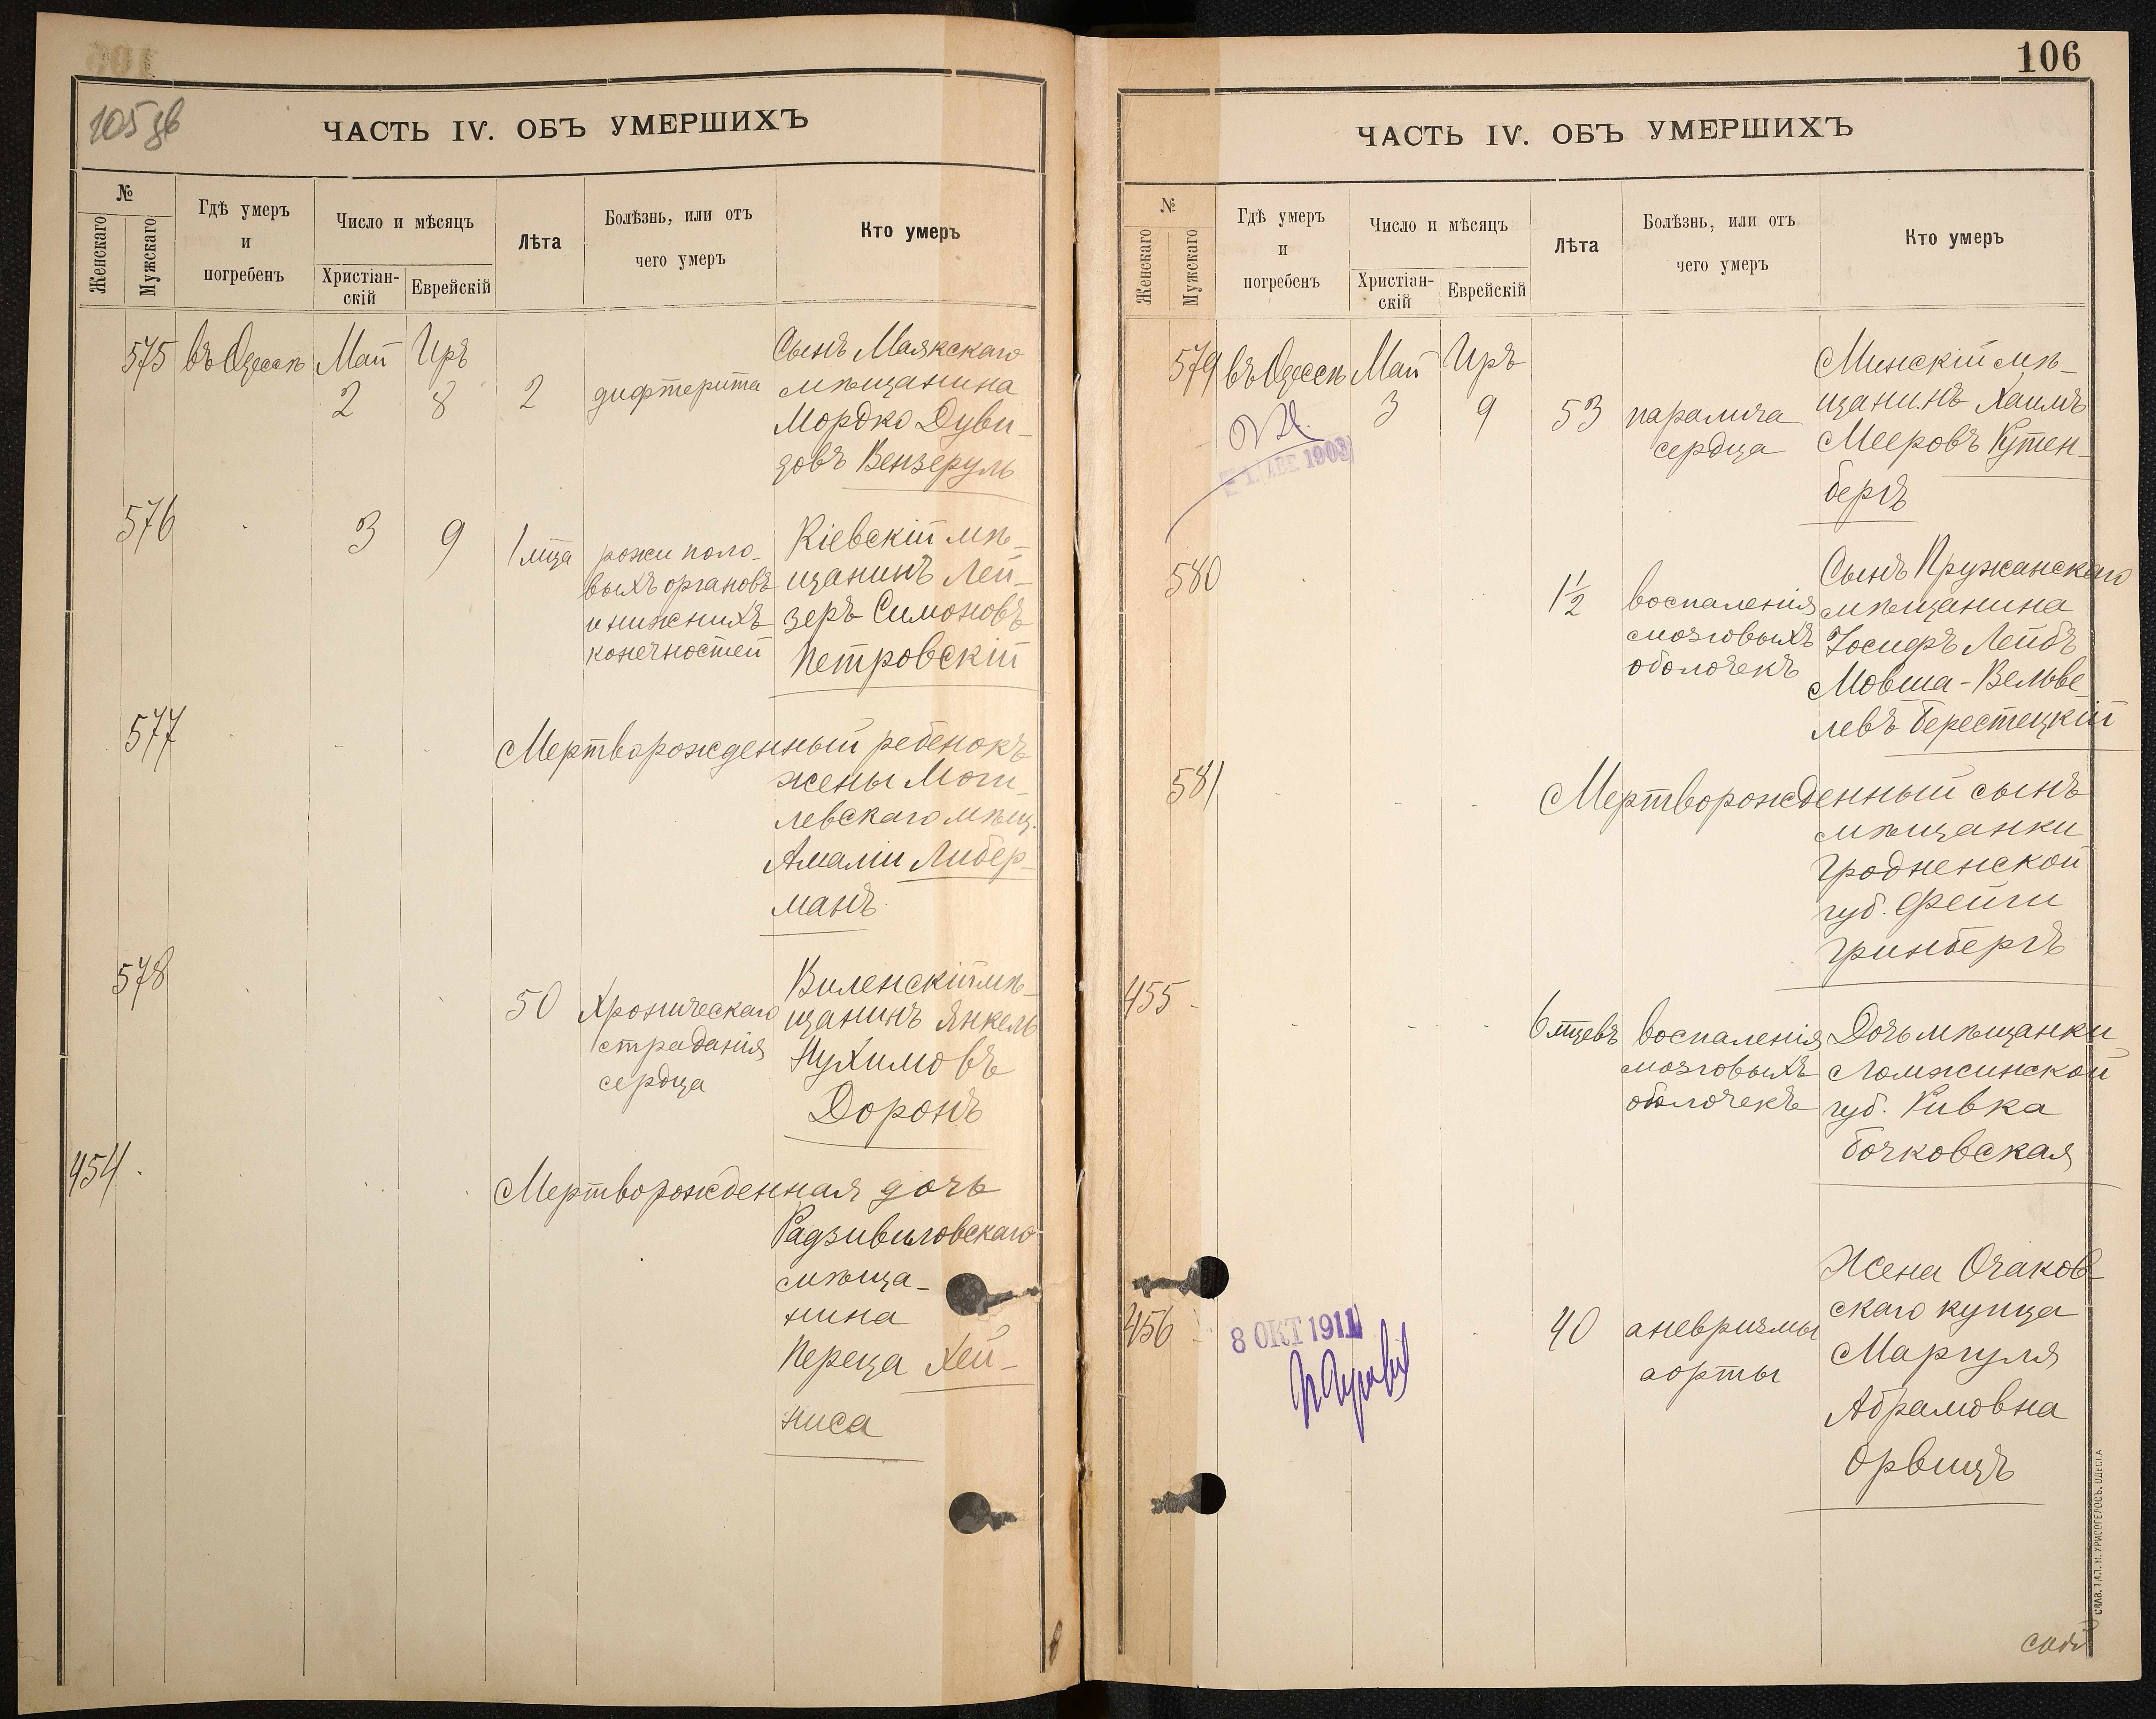 105 зв
ЧАСТЬ IV. ОБЪ УМЕРШИХЪ
№
Женскаго
Мужскаго
Гдѣ умеръ
и
погребенъ
Число и мѣсяцъ
Христіан-
скій
Еврейскій
Лѣта
Болѣзнь, или отъ
чего умеръ
Кто умеръ
575 въ Одессѣ Май Иръ
2 8 2 дифтерита
Сынъ Маякскаго
мѣщанина
Мордко Дуви-
довъ Вензеруль
576 3 9 1 мца
рожи поло-
выхъ органовъ
и нижнихъ
конечностей
Кіевскій мѣ-
щанинъ Лей-
зеръ Симоновъ
Петровскій
577
Мертворожденный ребенокъ
жены Моги-
левскаго мѣщ.
Амаліи Либер-
манъ
578 50
Хроническаго
страданія
сердца
Виленскій мѣ-
щанинъ Янкель
Нухимовъ
Доронъ
454
Мертворожденная дочь
Радзивиловскаго
мѣща-
нина
Переца Хей-
ниса
106
ЧАСТЬ IV. ОБЪ УМЕРШИХЪ
№
Женскаго
Мужскаго
Гдѣ умеръ
и
погребенъ
Число и мѣсяцъ
Христіан-
скій
Еврейскій
Лѣта
Болѣзнь, или отъ
чего умеръ
Кто умеръ
579 въ Одессѣ Май Иръ
3 9 53
1903
паралича
сердца
Минскій мѣ-
щанинъ Хаимъ
Мееровъ Гутен-
бергъ
580 1½
воспаленія
мозговыхъ
оболочекъ
Сынъ Пружанскаго
мѣщанина
Іосифъ Лейбъ
Мовша-Вельве
левъ Берестецкій
581
Мертворожденный сынъ
мѣщанки
Гродненской
губ. Фейги
Гринбергъ
455 6 мцевъ
воспаленія
мозговыхъ
оболочекъ
Дочь мѣщанки
Ломжинской
губ. Ривка
Бочковская
456 40
8 ОКТ 1911
аневризмы
аорты
Жена Очаков-
скаго купца
Маргуля
Абрамовна
Орвицъ